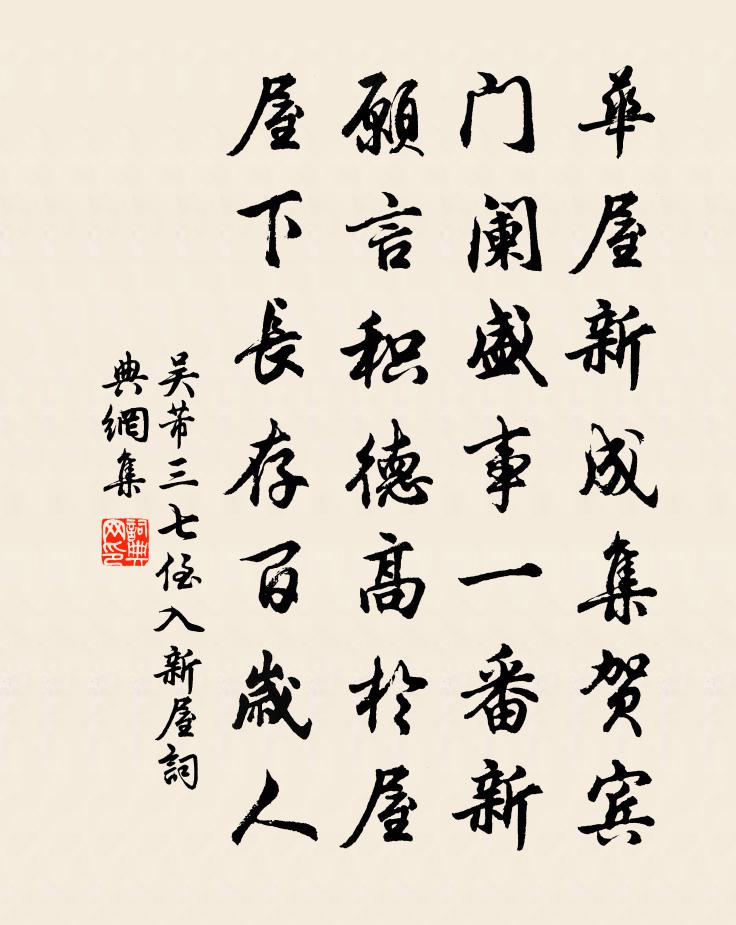 華屋新成集贺宾
门阑盛事一番新
願言积德高於屋
屋下長存百歲人
吴芾三七侄入新屋詞
典網集
詞典网印